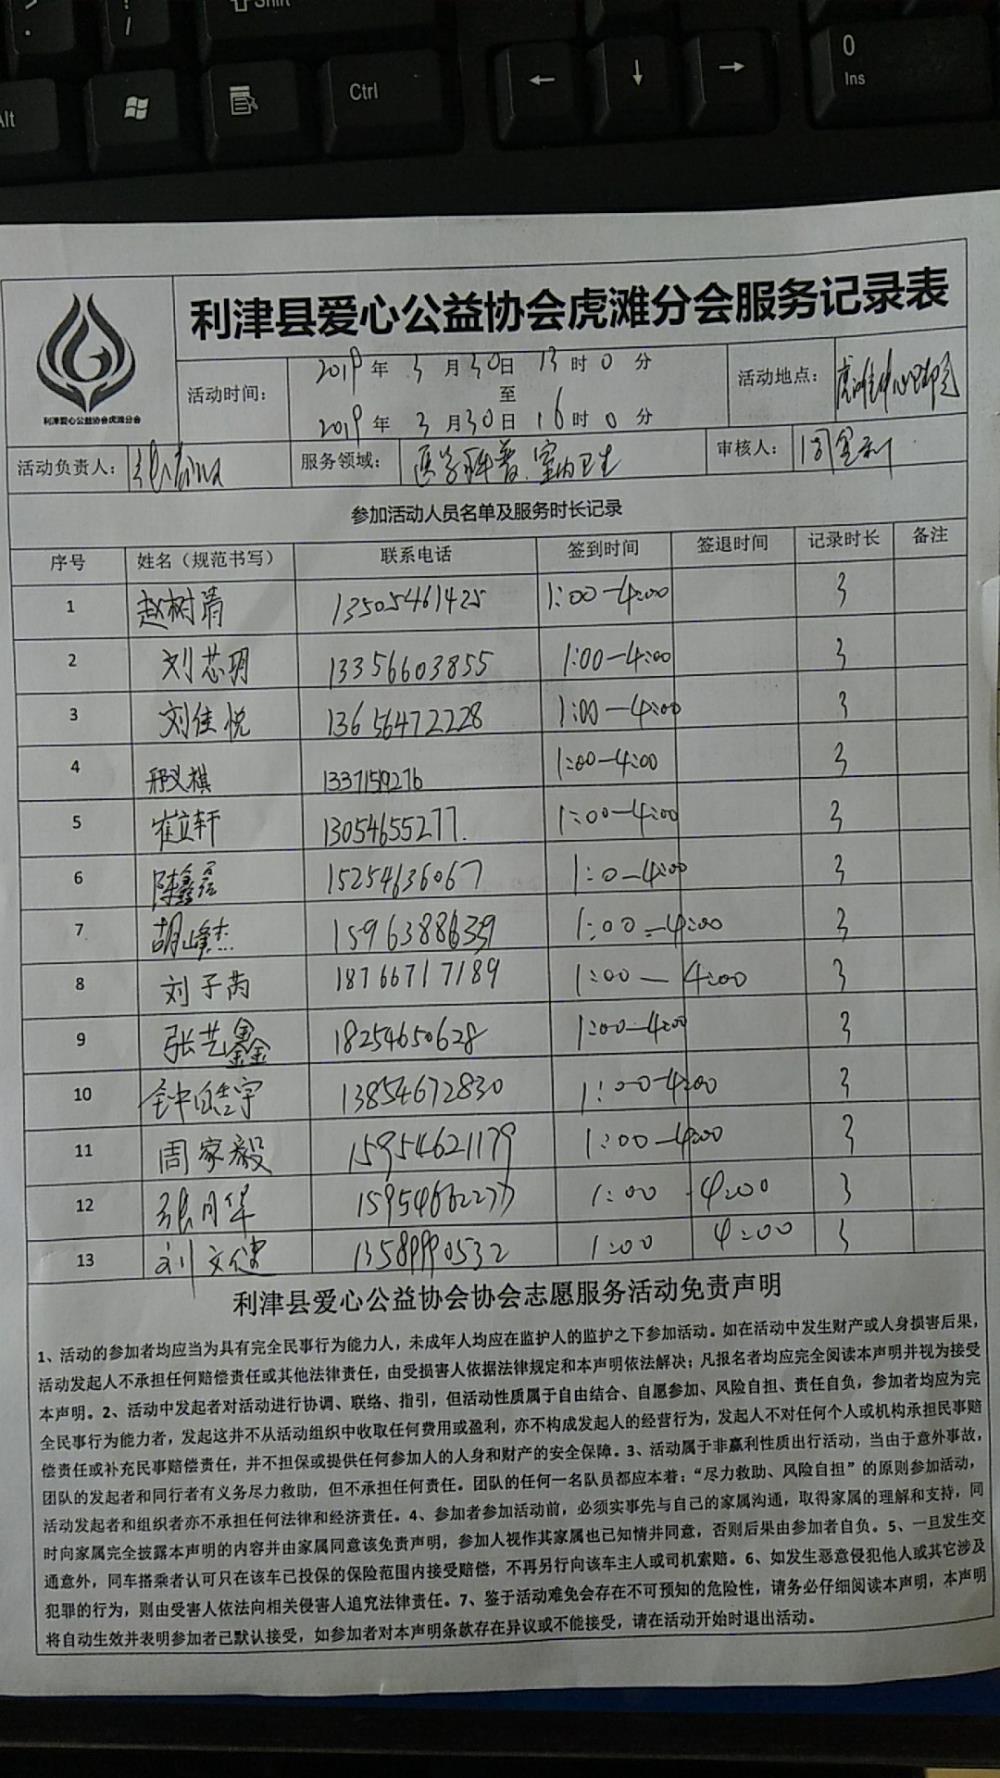 Shift
Alt
Ctrl
←
↓
→
0
Ins
利津爱心公益协会虎滩分会
利津县爱心公益协会虎滩分会服务记录表
活动时间：
2019年 3月30日 13时0分
至
2019年 3月30日 16时0分
活动地点：
活动负责人：
服务领域： 医学科普、室内卫生
审核人：
参加活动人员名单及服务时长记录
序号 姓名（规范书写） 联系电话 签到时间 签退时间 记录时长 备注
1 赵树清 13505461425 1:00-4:00 3
2 刘芯玥 13356603855 1:00-4:00 3
3 刘佳悦 13656472228 1:00-4:00 3
4 邢义棋 1337159276 1:00-4:00 3
5 崔立轩 13054655277. 1:00-4:00 3
6 陈鑫磊 15254636067 1:0-4:00 3
7 胡峰杰 15963886339 1:00-4:00 3
8 刘子芮 18766717189 1:00-4:00 3
9 张艺鑫 18254650628 1:00-4:00 3
10 钟皓宇 13854672830 1:00-4:00 3
11 周家毅 15954621179 1:00-4:00 3
12 张月华 15954662277 1:00 4:00 3
13 刘文健 13589990532 1:00 4:00 3
利津县爱心公益协会协会志愿服务活动免责声明
1、活动的参加者均应当为具有完全民事行为能力人，未成年人均应在监护人的监护之下参加活动。如在活动中发生财产或人身损害后果，
活动发起人不承担任何赔偿责任或其他法律责任，由受损害人依据法律规定和本声明依法解决；凡报名者均应完全阅读本声明并视为接受
本声明。2、活动中发起者对活动进行协调、联络、指引，但活动性质属于自由结合、自愿参加、风险自担、责任自负，参加者均应为完
全民事行为能力者，发起这并不从活动组织中收取任何费用或盈利，亦不构成发起人的经营行为，发起人不对任何个人或机构承担民事赔
偿责任或补充民事赔偿责任，并不担保或提供任何参加人的人身和财产的安全保障。3、活动属于非赢利性质出行活动，当由于意外事故，
团队的发起者和同行者有义务尽力救助，但不承担任何责任。团队的任何一名队员都应本着：“尽力救助、风险自担”的原则参加活动，
活动发起者和组织者亦不承担任何法律和经济责任。4、参加者参加活动前，必须实事先与自己的家属沟通，取得家属的理解和支持，同
时向家属完全披露本声明的内容并由家属同意该免责声明，参加人视作其家属也已知情并同意，否则后果由参加者自负。5、一旦发生交
通意外，同车搭乘者认可只在该车已投保的保险范围内接受赔偿，不再另行向该车主人或司机索赔。6、如发生恶意侵犯他人或其它涉及
犯罪的行为，则由受害人依法向相关侵害人追究法律责任。7、鉴于活动难免会存在不可预知的危险性，请务必仔细阅读本声明，本声明
将自动生效并表明参加者已默认接受，如参加者对本声明条款存在异议或不能接受，请在活动开始时退出活动。